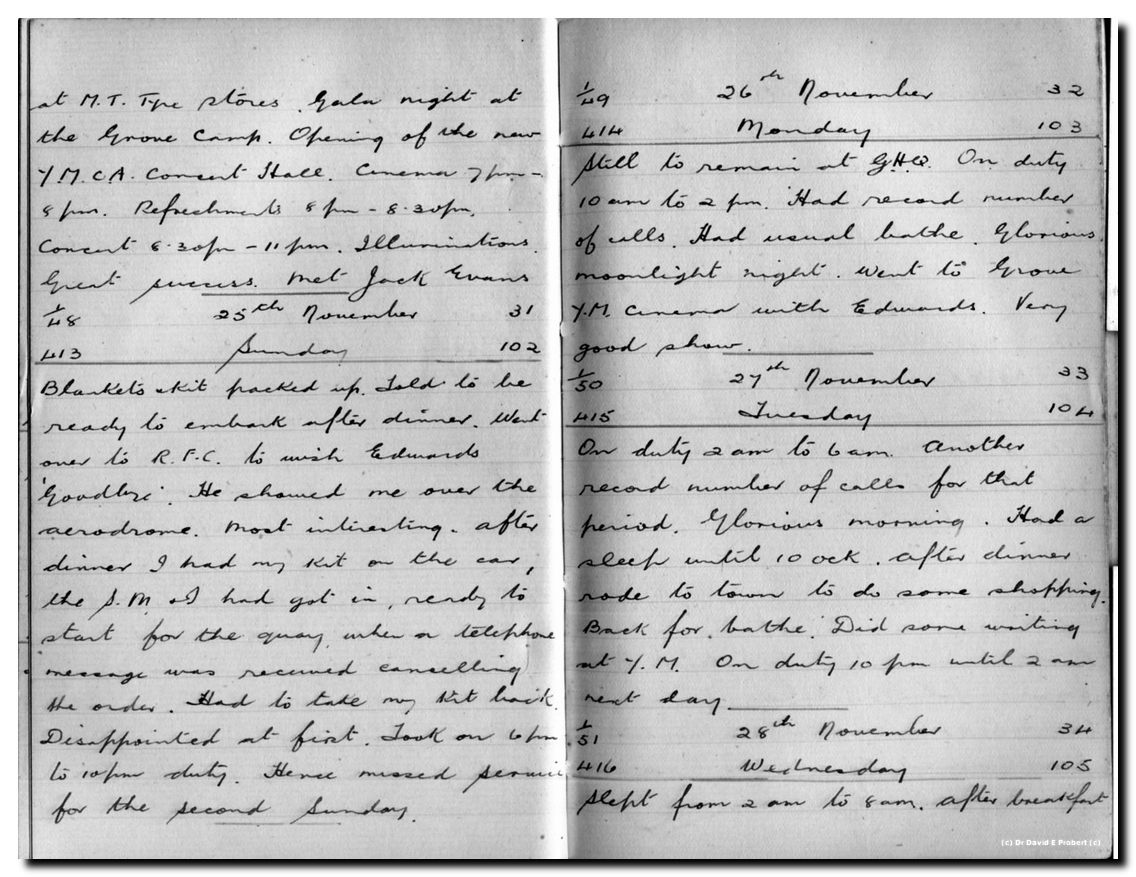 at M.T. Type stores. Gala night at
the Grove Camp. Opening of the new
Y.M.C.A. Concert Hall. Cinema 7pm-
8 pm. Refreshments 8 pm - 8.30pm.
Concert 8.30pm - 11 pm. Illuminations.
Great success. Met Jack Evans
1/48 25th November 31
413 Sunday 102
Blankets & kit packed up. Told to be
ready to embark after dinner. Went
over to R.F.C. to wish Edwards
'Goodbye'. He showed me over the
aerodrome. Most interesting. After
dinner I had my kit on the car,
the S.M. & I had got in, ready to
start for the quay when a telephone
message was received cancelling
the order. Had to take my kit back.
Disappointed at first. Took on 6 pm
to 10 pm duty. Hence missed service
for the second Sunday.
1/49 26th November 32
414 Monday 103
Still to remain at G.H.Q. On duty
10 am to 2 pm. Had record number
of calls. Had usual bathe. Glorious
moonlight night. Went to Grove
Y.M. Cinema with Edwards. Very
good show.
1/50 27th November 33
415 Tuesday 104
On duty 2 am to 6 am. Another
record number of calls for that
period. Glorious morning. Had a
sleep until 10 ock. After dinner
rode to town to do some shopping.
Back for bathe. Did some writing
at Y.M. On duty 10 pm until 2 am
next day.
1/51 28th November 34
416 Wednesday 105
Slept from 2 am to 8 am. After breakfast
(c) Dr David E Probert (c)